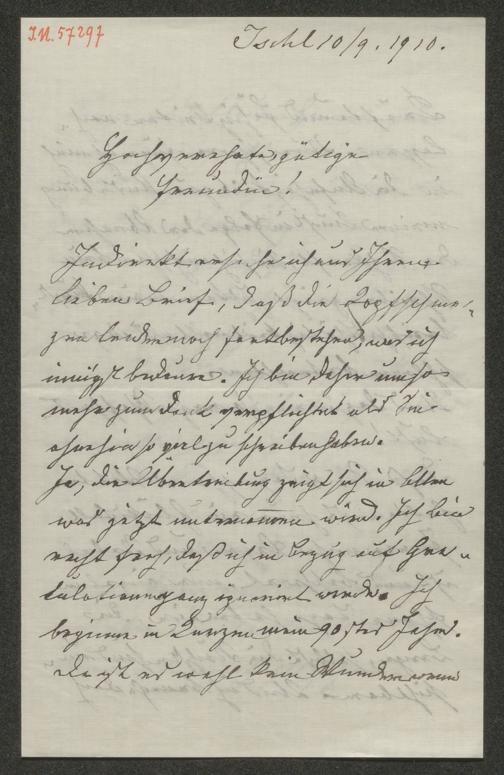 I.N. 57297
Ischl 10/9. 1910.
Hochverehrte, gütige
Freundin!
Indirekt ersehe ich aus Ihrem
lieben Brief, daß die Kopfschmer-
zen leider noch fortbestehen, was ich
innigst bedaure. Ich bin daher umso
mehr zum Dank verpflichtet als Sie
ohnehin so viel zu schreiben haben.
Ja, die Übertreibung zeigt sich in Allem
was jetzt unternommen wird. Ich bin
recht froh, daß ich in Bezug auf Gra-
tulationen ganz ignorirt werde. Ich
beginne in Kurzem mein 90stes Jahr.
Da ist es wohl kein Wunder wenn